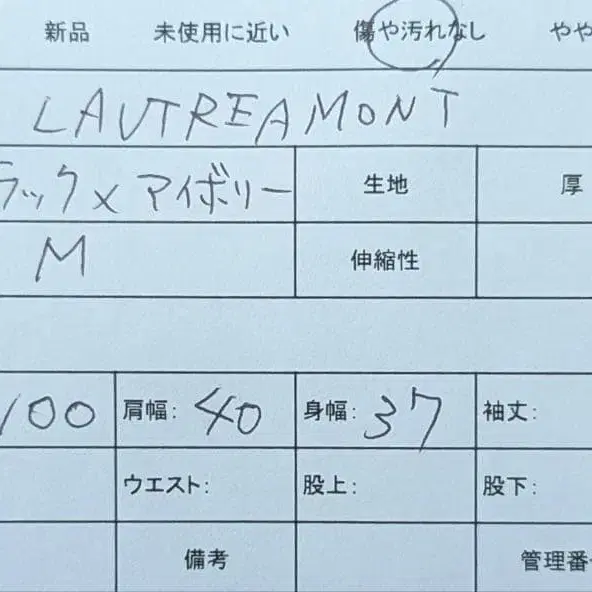 新品 未使用に近い 傷や汚れなし やや
LAUTREAMONT
ラック×アイボリー 生地 厚
M 伸縮性
100 肩幅: 40 身幅: 37 袖丈:
ウエスト: 股上: 股下:
備考 管理番